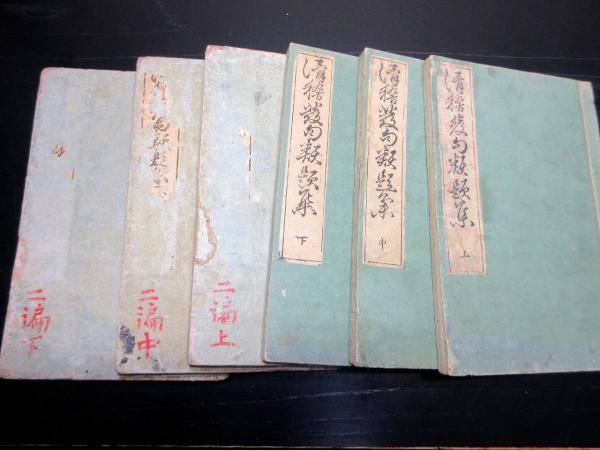 清稽發句類題集 上
清稽發句類題集 中
清稽發句類題集 下
二編上
二編中
二編下